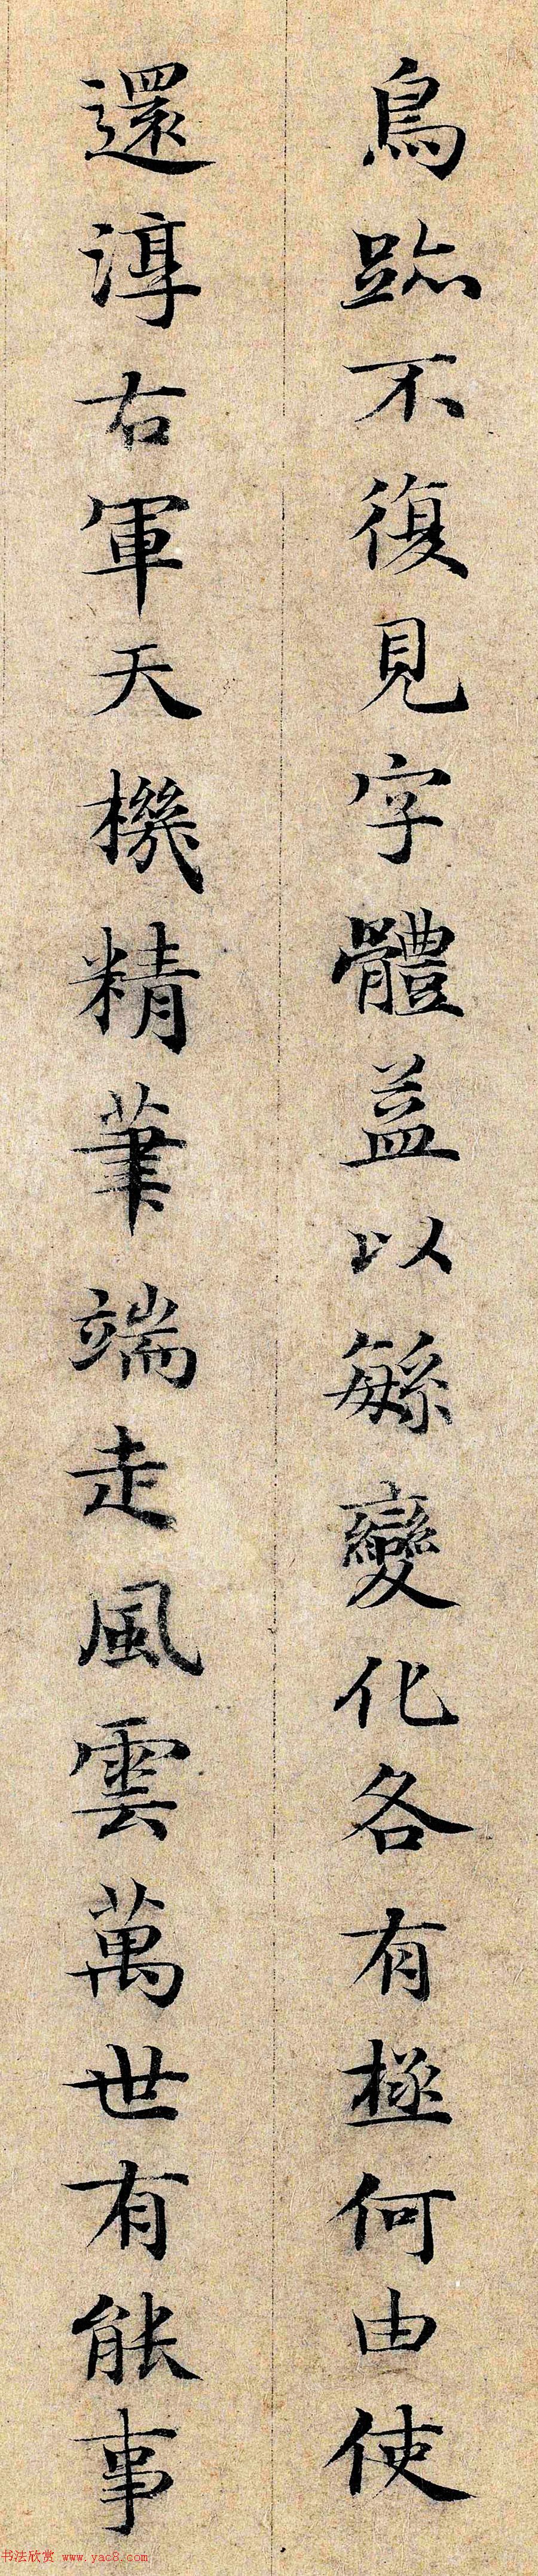 鳥跡不復見字體益以繁變化各有極何由使
還淳右軍天機精筆端走風雲萬世有能事
书法欣赏 www.yac8.com